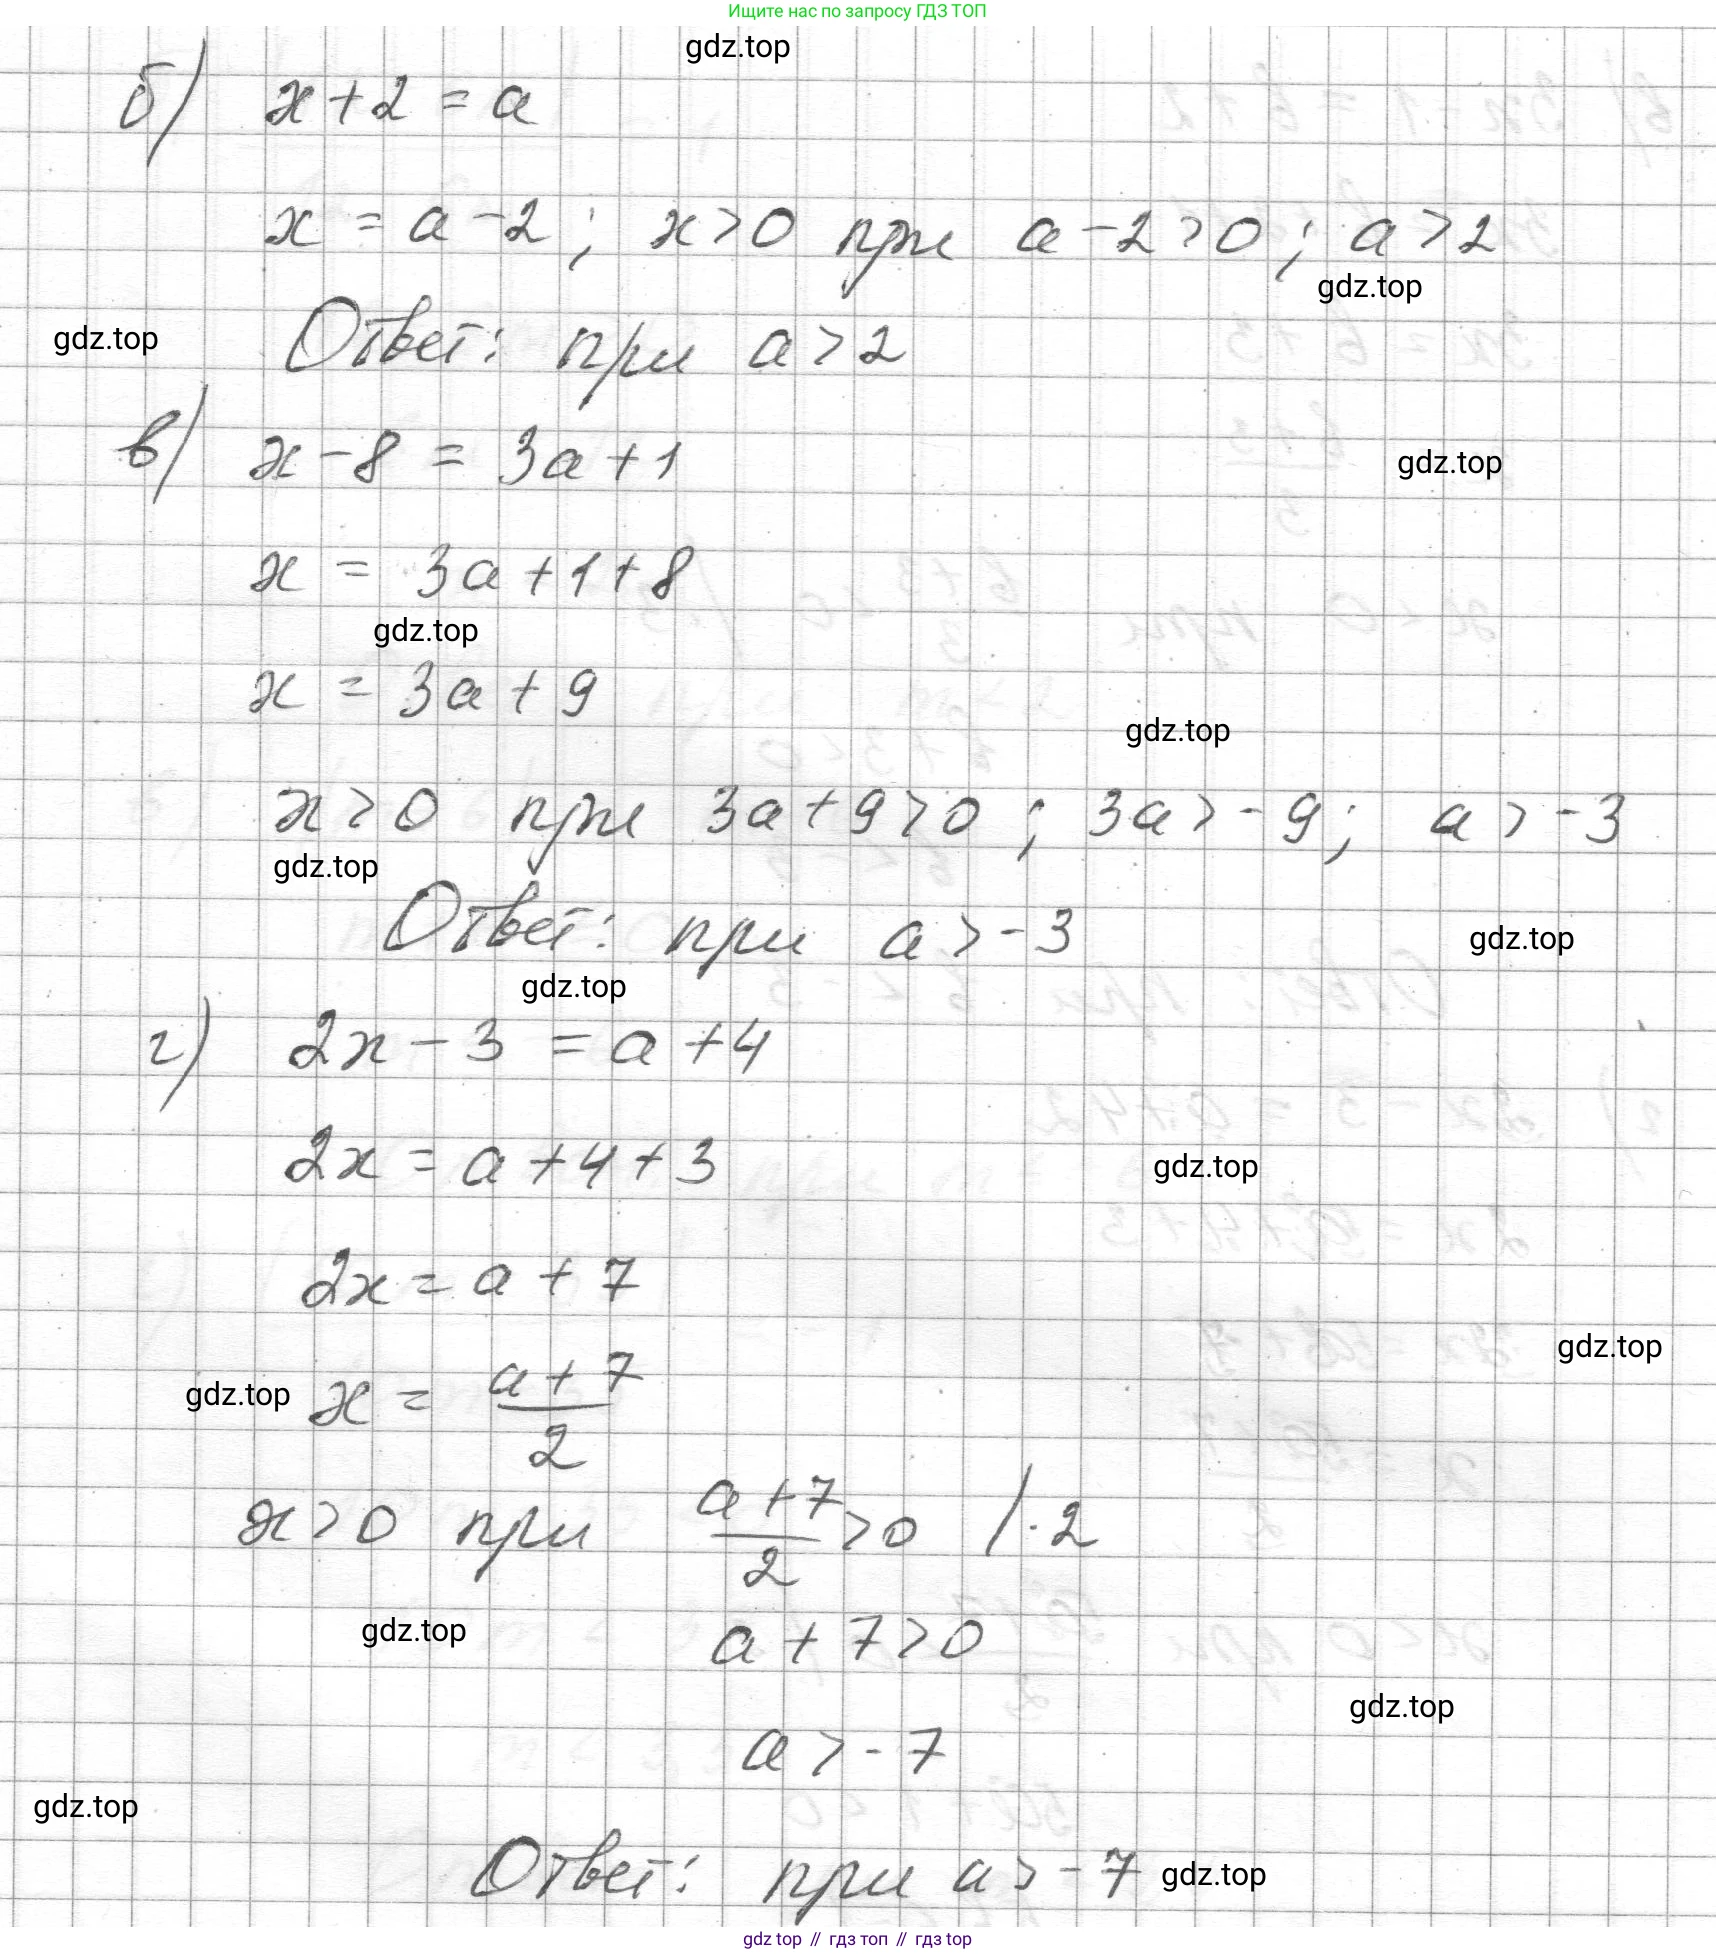 Ищите нас по запросу ГДЗ ТОП
gdz.top
б) x + 2 = a
x = a - 2 ; x > 0 при a - 2 > 0 ; a > 2
gdz.top
Ответ: при a > 2
gdz.top
в) x - 8 = 3a + 1
gdz.top
x = 3a + 1 + 8
gdz.top
x = 3a + 9
gdz.top
x > 0 при 3a + 9 > 0 ; 3a > -9 ; a > -3
gdz.top
Ответ: при a > -3
gdz.top
gdz.top
г) 2x - 3 = a + 4
2x = a + 4 + 3
gdz.top
2x = a + 7
gdz.top
gdz.top
x = \frac{a + 7}{2}
x > 0 при \frac{a + 7}{2} > 0 / · 2
gdz.top
a + 7 > 0
gdz.top
a > -7
gdz.top
Ответ: при a > -7
gdz.top
gdz top // гдз топ // гдз top